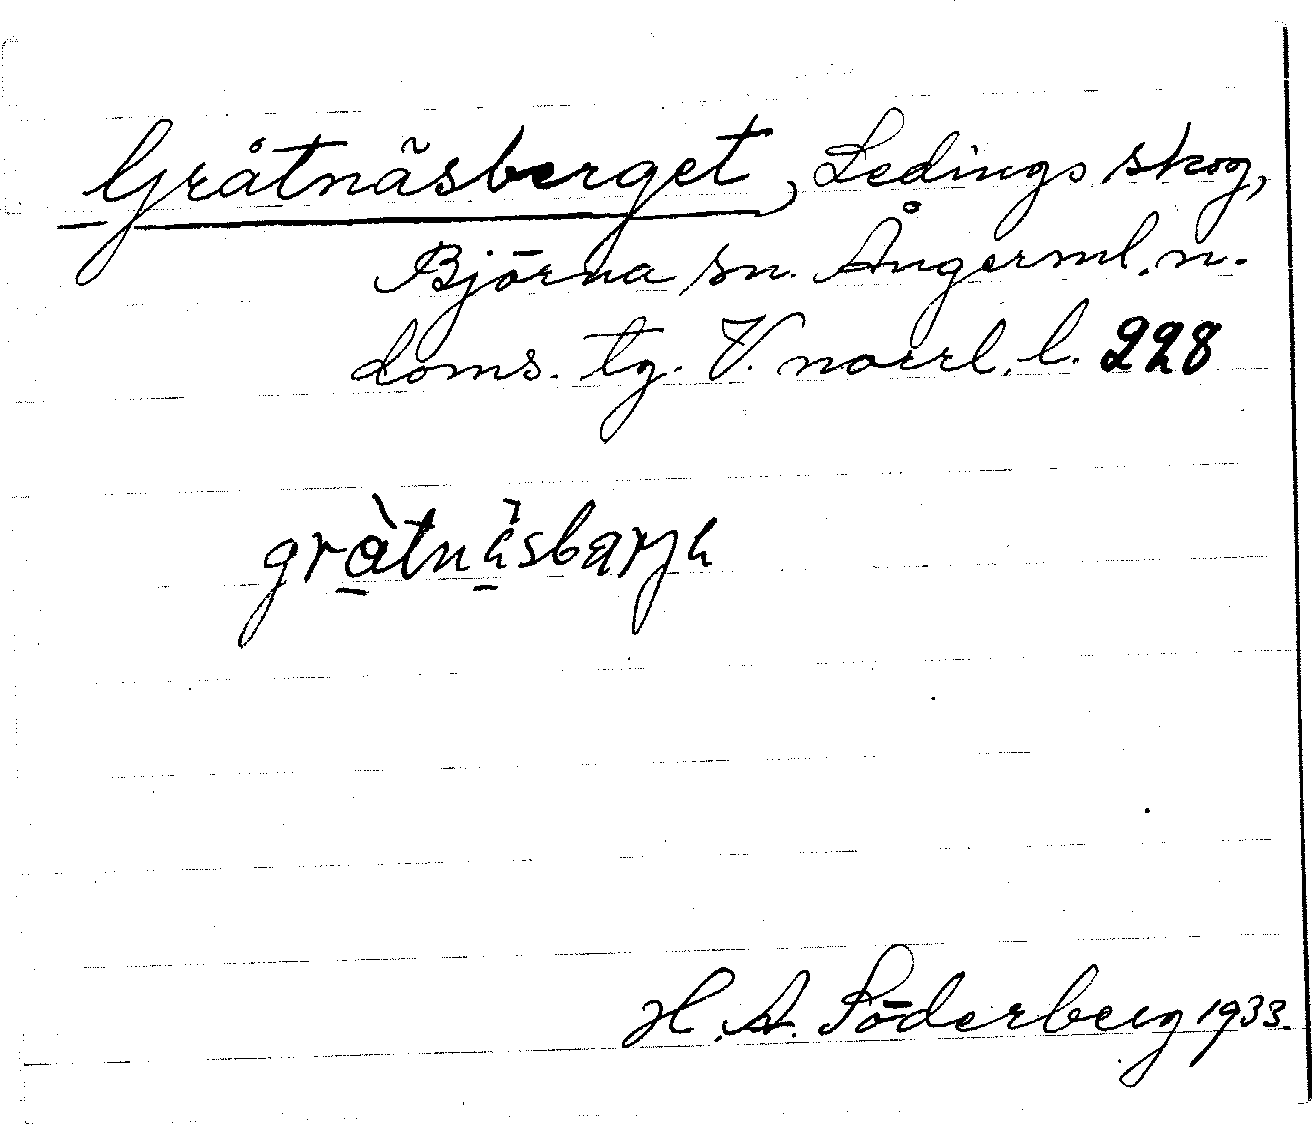 Gråtnäsberget, Ledings skog,
Björna sn. Ångerml. n.
doms. tg. V. norrl. l. 228
gràtnäsbarja
H. A. Söderberg 1933.